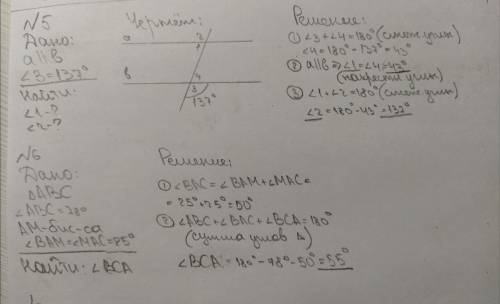 №5
Дано:
a||b
∠3=137°
Найти:
∠1-?
∠2-?
Чертёж:
a
2
1
b
4
3
137°
Решение:
① ∠3+∠4=180° (смеж углы)
∠4=180°-137°=43°
② a||b ⇒ ∠1=∠4=43°
(накрест углы)
③ ∠1+∠2=180° (смеж углы)
∠2=180°-43°=137°
№6
Дано:
△ABC
∠ABC=78°
AM-бис-са
∠BAM=∠MAC=25°
Найти: ∠BCA
Решение:
① ∠BAC=∠BAM+∠MAC=
=25°+25°=50°
② ∠ABC+∠BAC+∠BCA=180°
(сумма углов △)
∠BCA=180°-78°-50°=55°